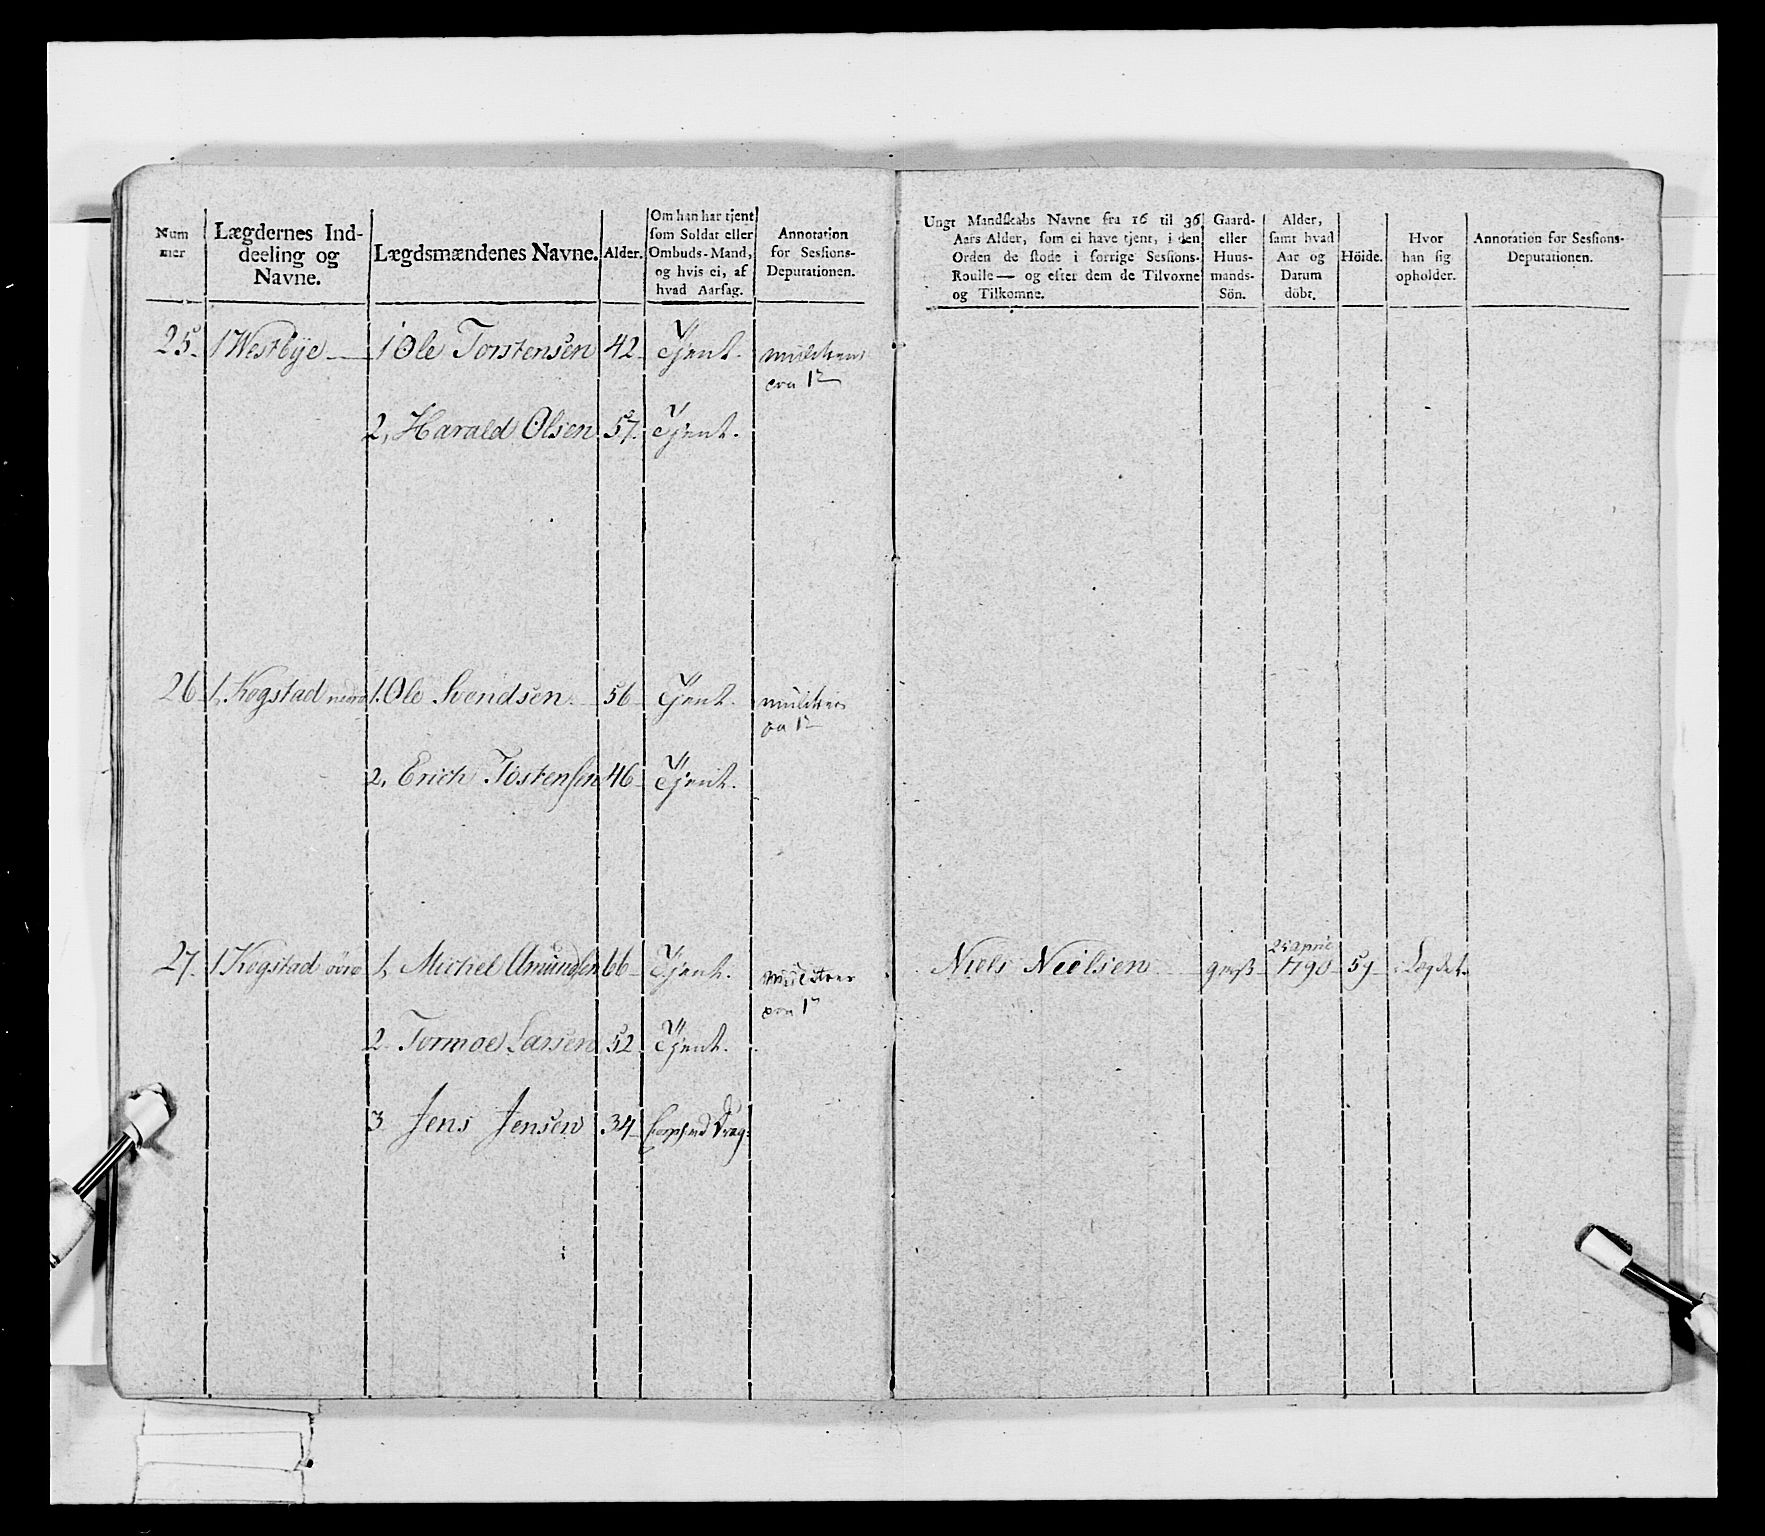 Num
mer
Lægdernes Ind-
deeling og
Navne.
Lægdsmændenes Navne.
Alder.
Om han har tjent
som Soldat eller
Ombuds-Mand,
og hvis ei, af
hvad Aarsag.
Annotation
for Sessions-
Deputationen.
Ungt Mandskabs Navne fra 16 til 36
Aars Alder, som ei have tjent, i den
Orden de stode i forrige Sessions-
Roulle — og efter dem de Tilvoxne
og Tilkomne.
Gaard-
eller
Huus-
mands-
Sön.
Alder,
samt hvad
Aar og
Datum
döbt.
Höide.
Hvor
han sig
opholder.
Annotation for Sessions-
Deputationen.
25. 1 Westbye 1 Ole Torstensen 42 Tjent.
2, Harald Olsen 57. Tjent.
26 1, Kogstad 1. Ole Svendsen. 56 Tjent.
2, Erich Tostensen 46 Tjent.
27. 1 Kogstad övre 1, Michel Amundsen 66 Tjent. Niels Neelsen 1790 i Lægdet.
2 Tormoe Larsen 52 Tjent.
3 Jens Jensen 34 Drag: